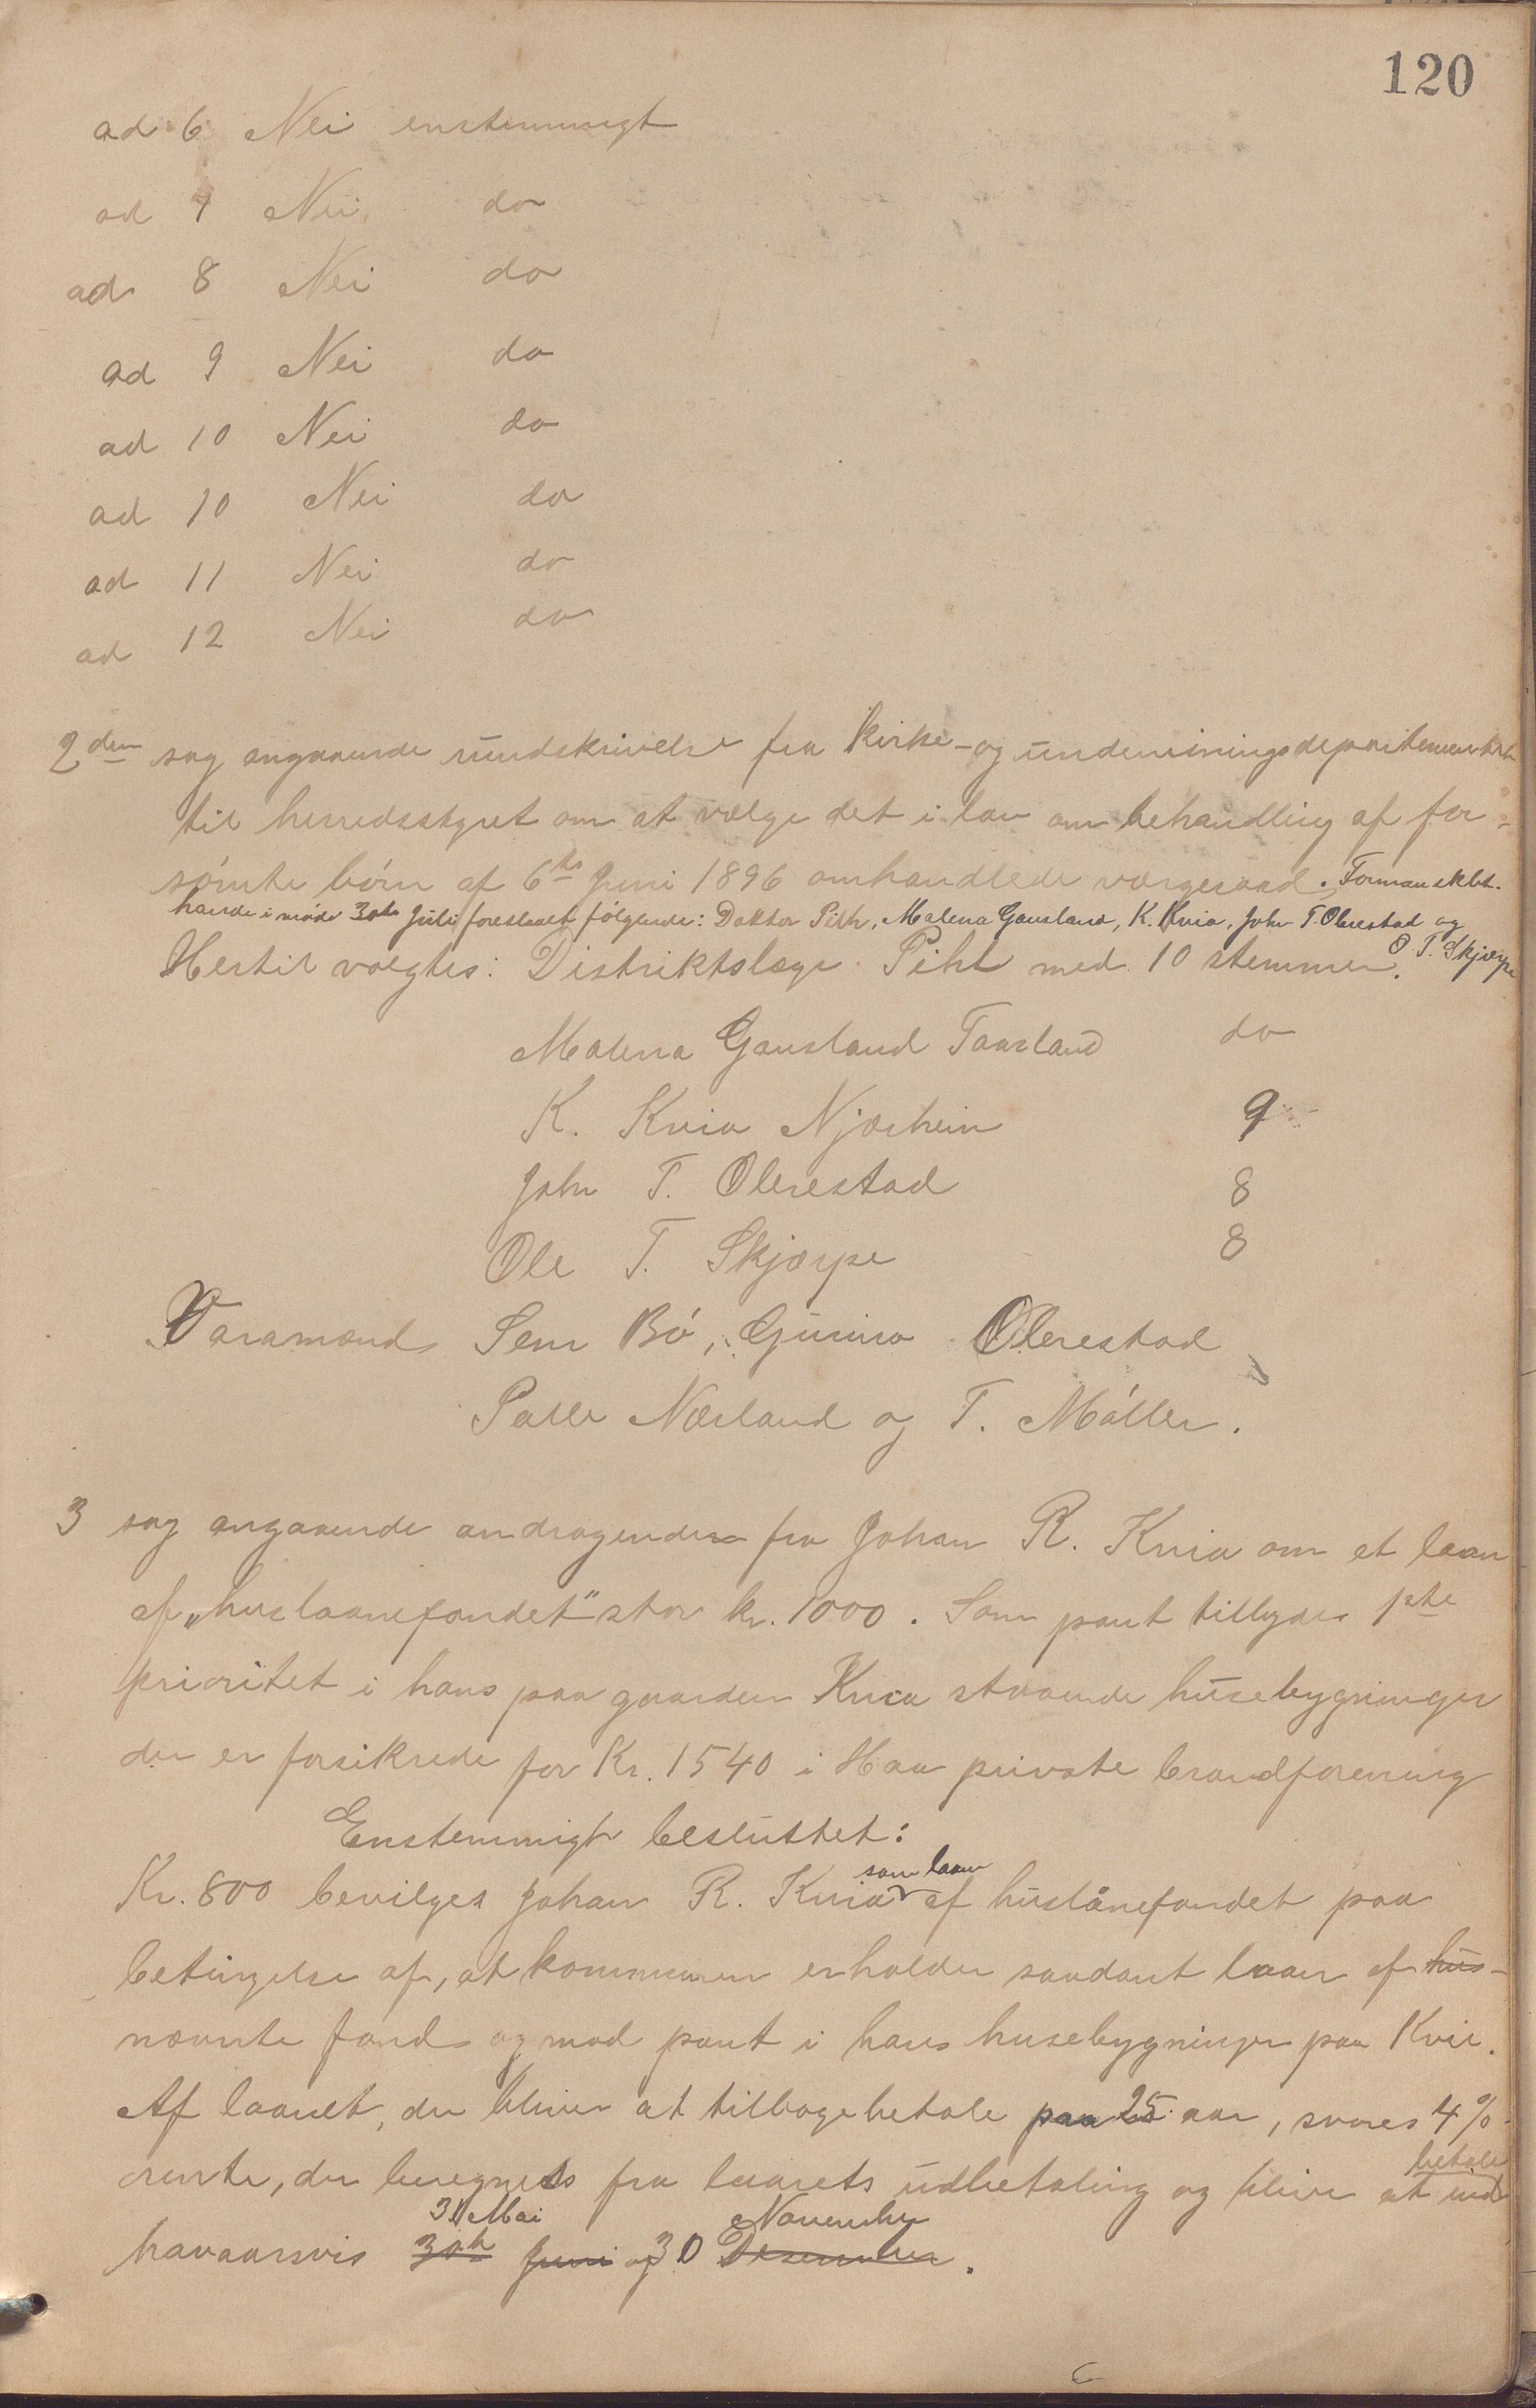 120
ad 6 Nei enstemmigt
ad 7 Nei do
ad 8 Nei do
ad 9 Nei do
ad 10 Nei do
ad 10 Nei do
ad 11 Nei do
ad 12 Nei do
2den sag angaaende rundskrivelse fra Kirke- og undervisningsdepartementet
til herredsstyret om at vælge det i lov om behandling af for-
sømte børn af 6te Juni 1896 omhandlede værgeraad. Formanskbt.
havde i møde 30te Juli foreslaaet følgende: Doktor Pihl, Malena Gausland, K. Kvia, John T. Obrestad og
O. T. Skjærpe
Hertil valgtes: Distriktslæge Pihl med 10 stemmer.
Malena Gausland Taarland do
K. Kvia Njærheim 9
John T. Obrestad 8
Ole T. Skjærpe 8
Varamænd Sem Bø, Gunna Obrestad
Salve Nærland og T. Møller.
3 sag angaaende andragende fra Johan R. Kvia om et laan
af „huslaanefondet“ stor kr. 1000. Som pant tilbydes 1ste
prioritet i hans paa gaarden Kvia staaende husebygninger
der er forsikrede for Kr. 1540 i Haa private brandforening
Enstemmigt besluttet:
som laan
Kr. 800 bevilges Johan R. Kvia af huslånefondet paa
betingelse af, at kommunen erholder saadant laan af hus-
nævnte fond og mod pant i hans husebygninger paa Kvie.
Af laanet, der bliver at tilbagebetale paa 25 aar, svares 4%
rente, der beregnes fra laanets udbetaling og bliver at ind
betale
31 Mai November
havaarsvis 30te Juni og 30 Desember.